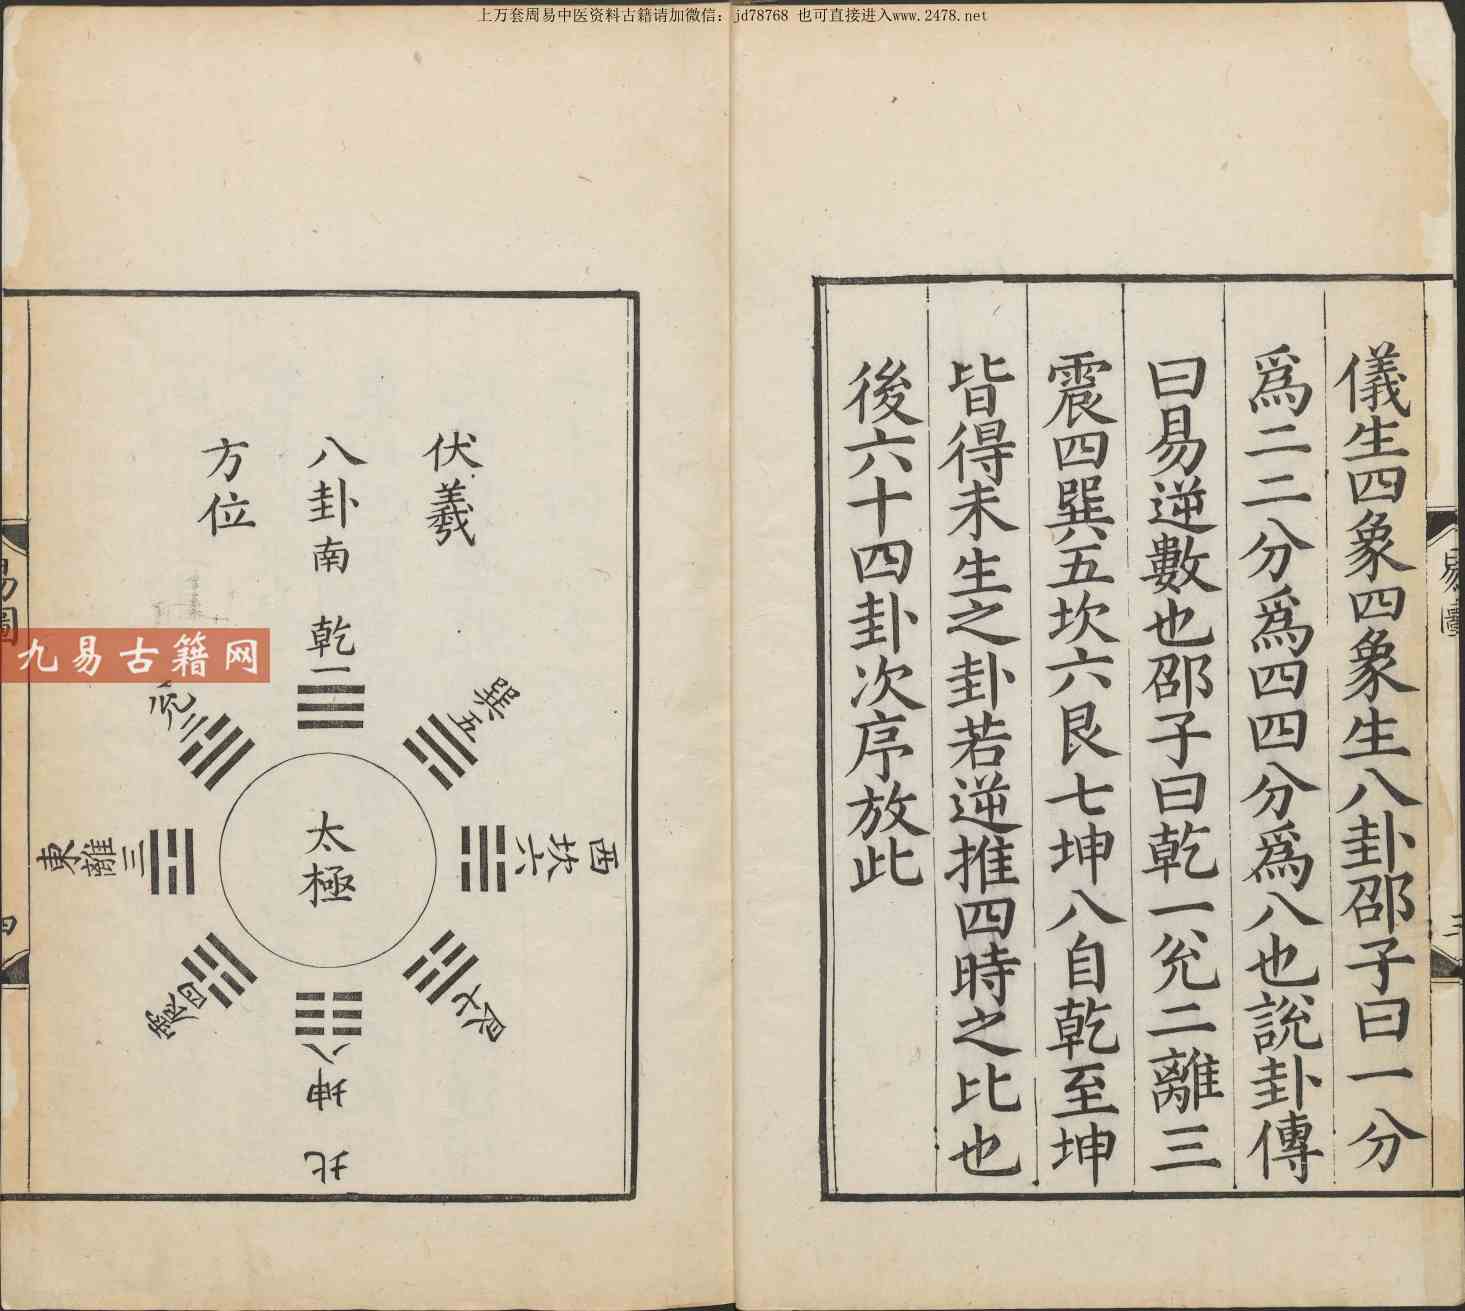 上万套周易中医资料古籍请加微信：jd78768 也可直接进入www.2478.net
儀生四象四象生八卦邵子曰一分
爲二二分爲四四分爲八也說卦傳
曰易逆數也邵子曰乾一兊二離三
震四巽五坎六艮七坤八自乾至坤
皆得未生之卦若逆推四時之比也
後六十四卦次序放此
易圖
三
伏羲
八卦
方位
南
乾一
巽五
西
坎六
艮七
北
坤八
震四
東
離三
兊二
太極
易圖
四
九易古籍网